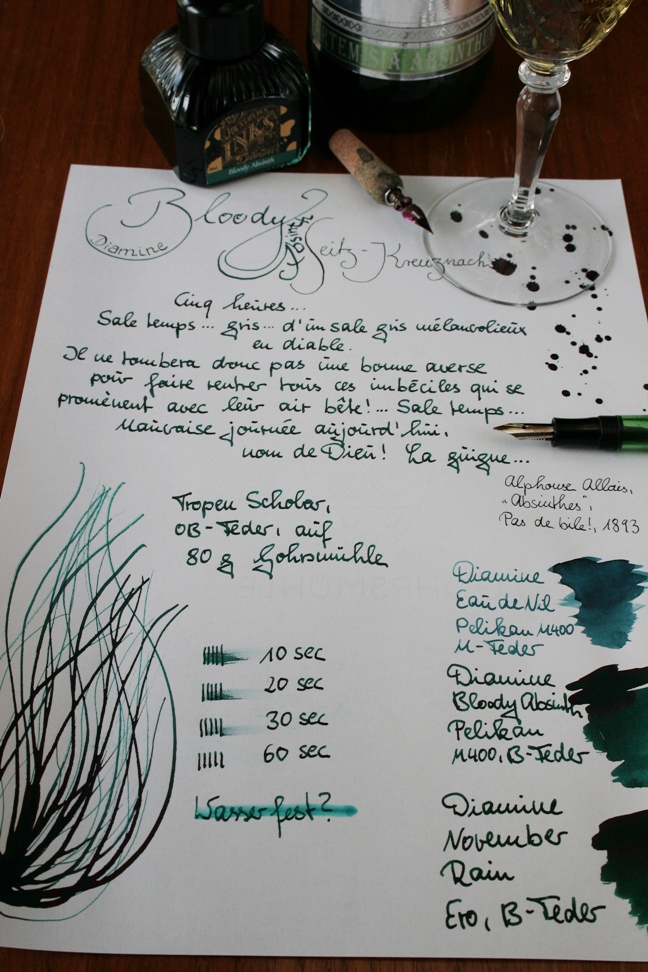 ARTEMISIA ABSINTH
INKS
Bloody Absinth
Diamine
Bloody
Absinth
Seitz-Kreuznach
Cinq heures...
Sale temps... gris... d'un sale gris mélancolieux
en diable.
Il ne tombera donc pas une bonne averse
pour faire rentrer tous ces imbéciles qui se
promènent avec leur air bête!... Sale temps...
Mauvaise journée aujourd'hui,
nom de Dieu! La guigne...
Alphonse Allais,
"Absinthes",
Pas de bile!, 1893
Tropen Scholar,
OB-Feder, auf
80 g Gohrsmühle
10 sec
20 sec
30 sec
60 sec
Wasserfest?
Diamine
Eau de Nil
Pelikan M400
M-Feder
Diamine
Bloody Absinth
Pelikan
M400, B-Feder
Diamine
November
Rain
Ero, B-Feder